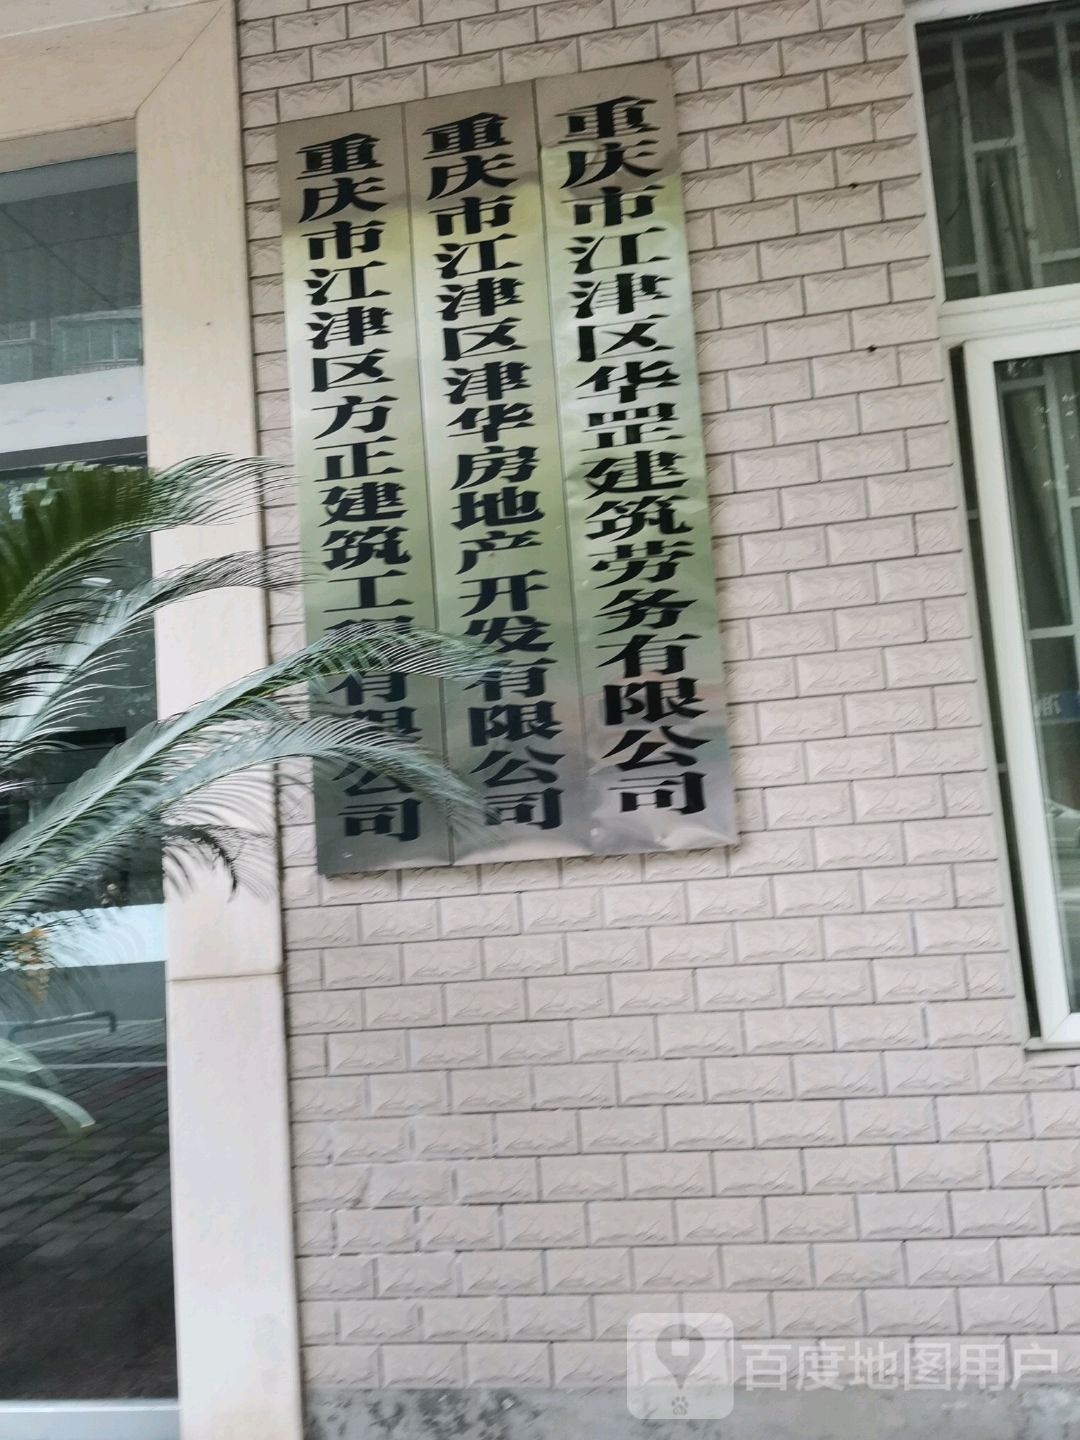 重庆市江津区方正建筑工程有限公司
重庆市江津区津华房地产开发有限公司
重庆市江津区华罡建筑劳务有限公司
百度地图用户